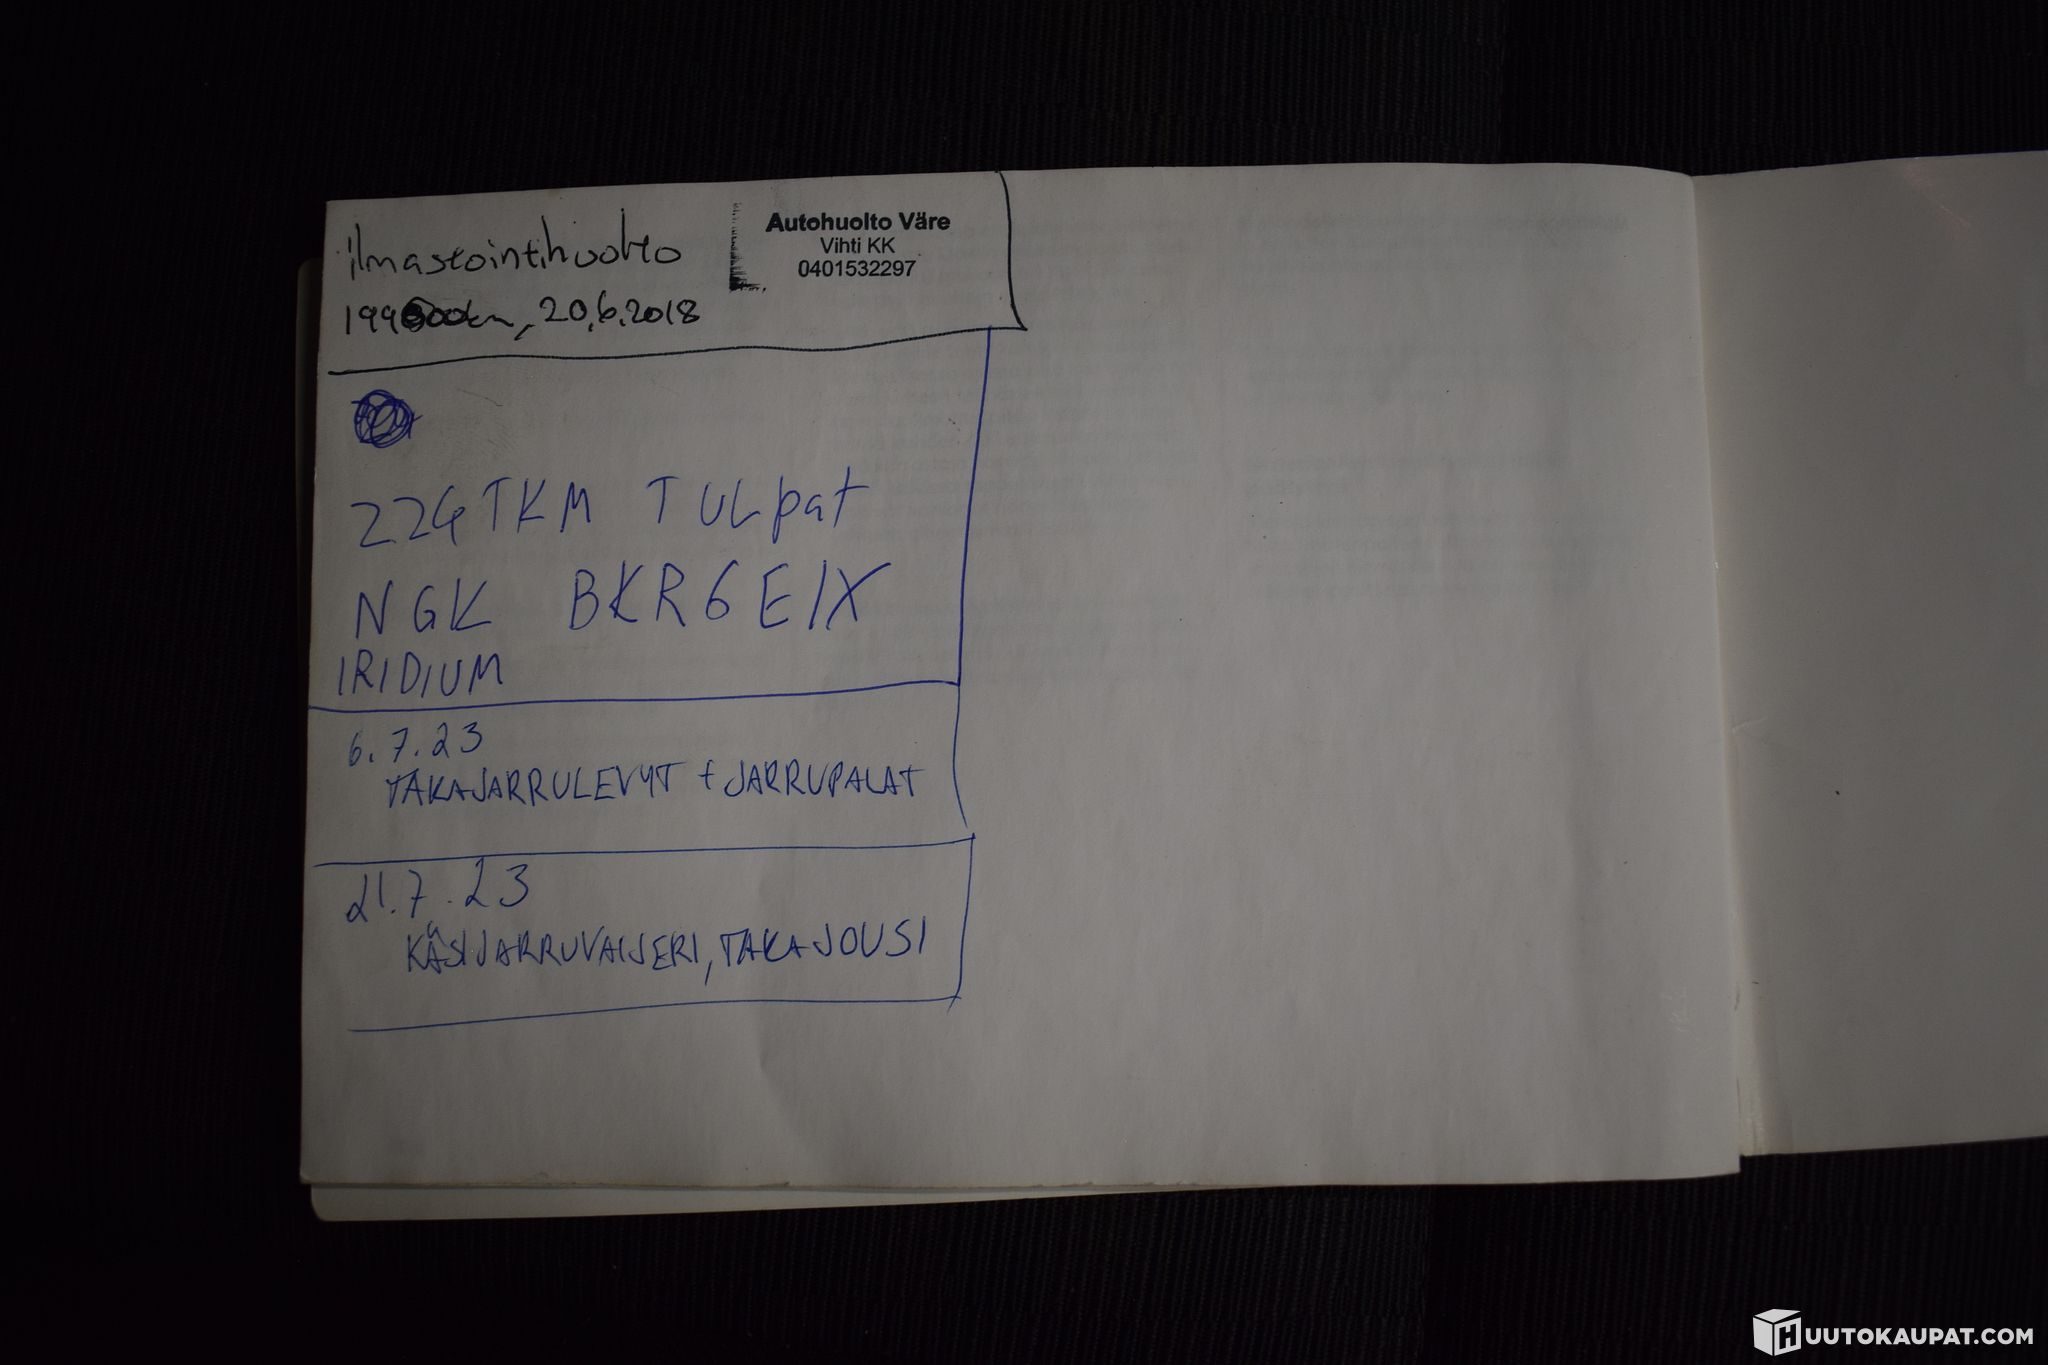 ilmastointihuolto
Autohuolto Väre
Vihti KK
0401532297
20.6.2018
224TKM TULpat
NGK BKR6EIX
IRIDIUM
6.7.23
TAKAJARRULEVYT + JARRUPALAT
21.7.23
KÄSIJARRUVAIJERI, TAKAJOUSI
HUUTOKAUPAT.COM